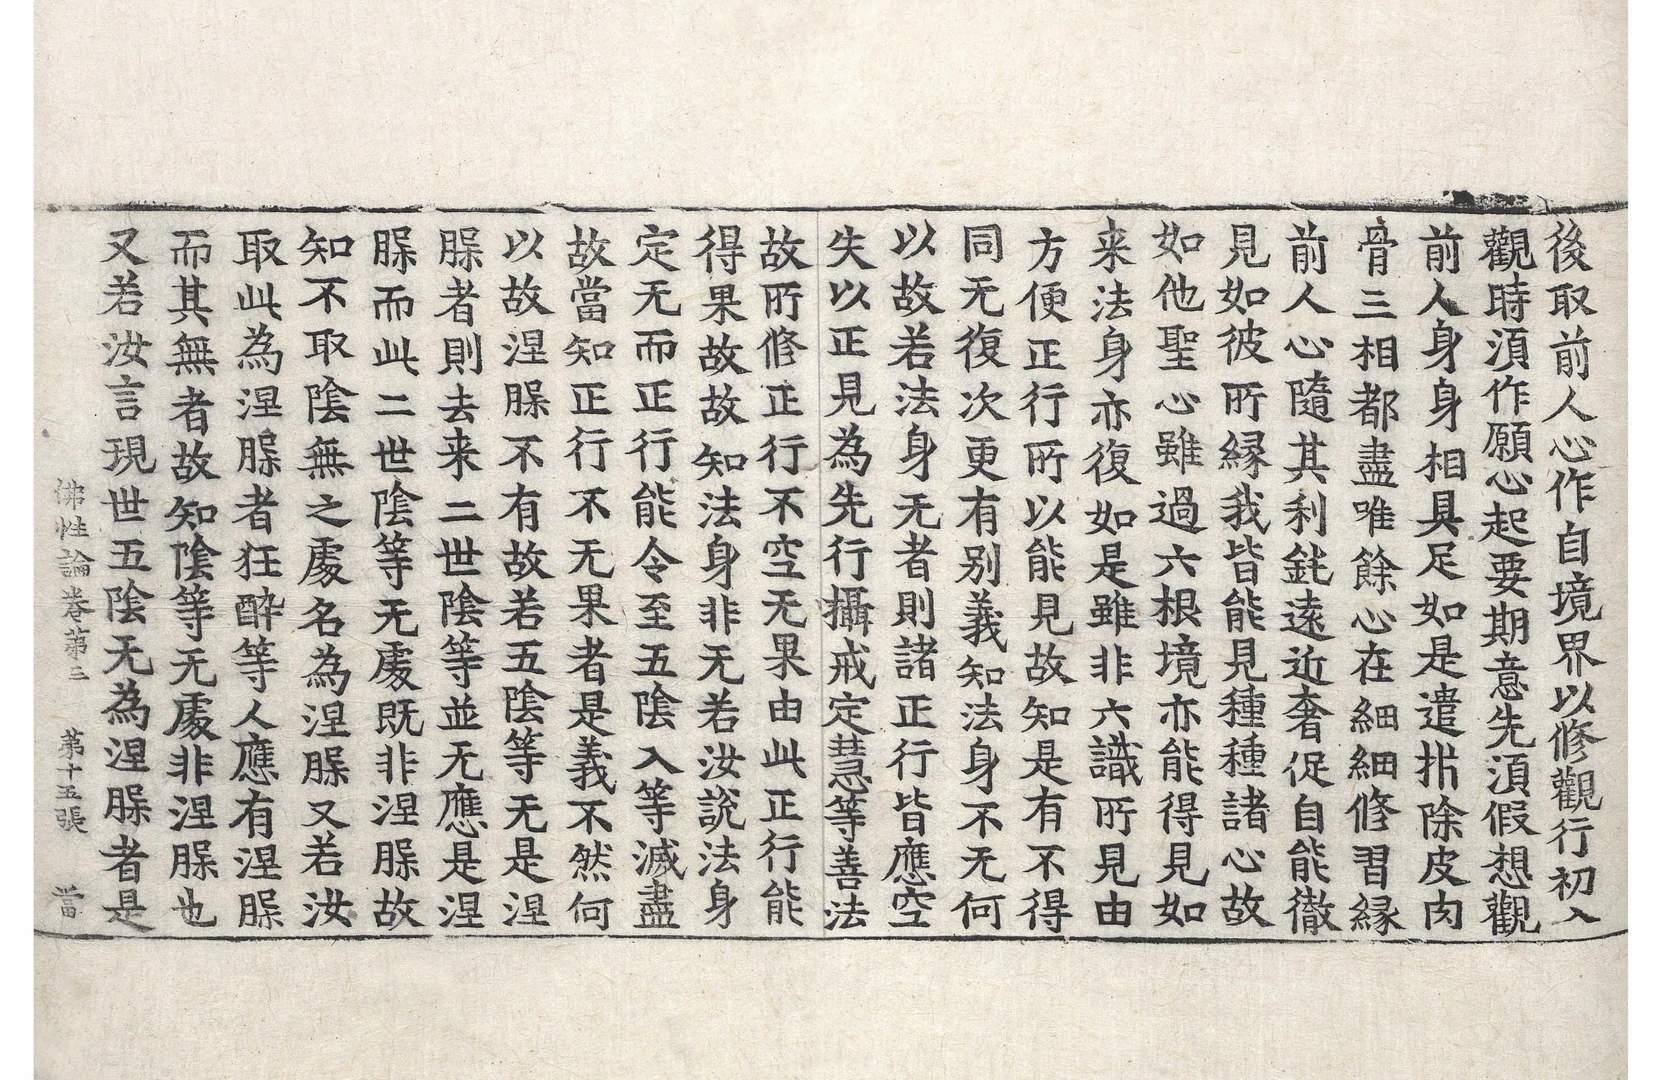 後取前人心作自境界以修觀行初入
觀時須作願心起要期意先須假想觀
前人身身相具足如是遣拼除皮肉
骨三相都盡唯餘心在細細修習緣
前人心隨其利鈍遠近奢促自能徹
見如彼所縁我皆能見種種諸心故
如他聖心雖過六根境亦能得見如
来法身亦復如是雖非六識所見由
方便正行所以能見故知是有不得
同无復次更有别義知法身不无何
以故若法身无者則諸正行皆應空
失以正見為先行攝戒定慧等善法
故所修正行不空无果由此正行能
得果故故知法身非无若汝說法身
定无而正行能令至五陰入等滅盡
故當知正行不无果者是義不然何
以故涅槃不有故若五陰等无是涅
槃者則去来二世陰等並无應是涅
槃而此二世陰等无處既非涅槃故
知不取陰無之處名為涅槃又若汝
取此為涅槃者狂醉等人應有涅槃
而其無者故知陰等无處非涅槃也
又若汝言現世五陰无為涅槃者是
佛性論卷第三 第十五張 當